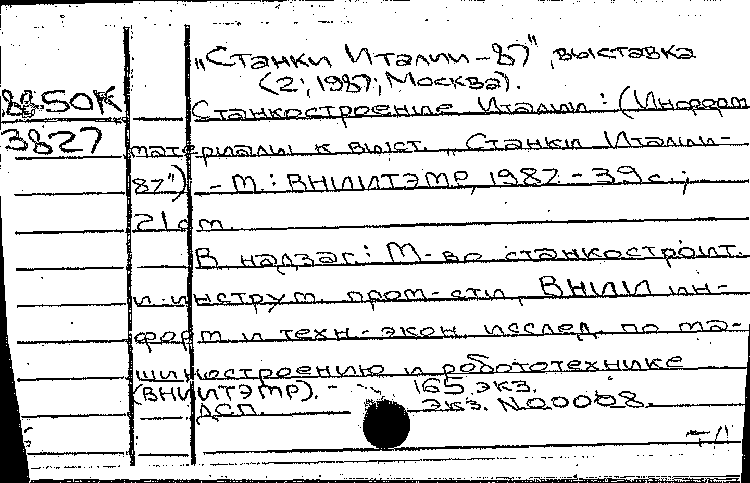 "Станки Италии-87", выставка
(2; 1987; Москва).
Станкостроение Италии: (Информ
материалы к выст. „Станки Италии-
87") - М.: ВНИИТЭМР, 1987. - 39 с.;
21 см.
В надзаг.: М-во станкостроит.
и инструм. пром-сти, ВНИИ ин-
форм и техн.-экон. исслед. по ма-
шиностроению и робототехнике
(ВНИИТЭМР). - 165 экз.
ДСП. экз. N00008.
3827